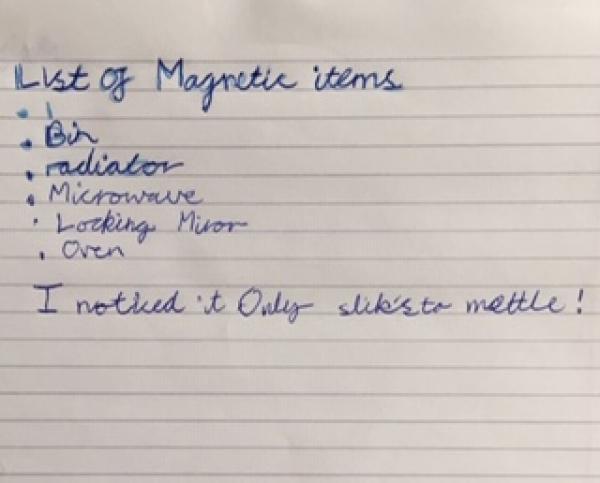 List of Magnetic items
• Bin
• radiator
• Microwave
• Locking Miror
• Oven
I noticed it Only stik's to mettle!